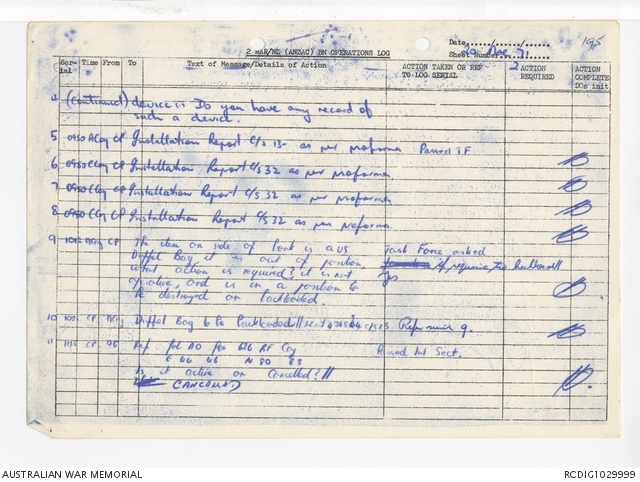 195
2 MAR/NZ (ANZAC) BN OPERATIONS LOG
Date 29 Dec 71
Sheet Number 2
Serial Time From To Text of Message/Details of Action ACTION TAKEN OR REF TO LOG SERIAL ACTION REQUIRED ACTION COMPLETE DOs init
4 (continued) device is. Do you have any record of
such a device.
5 0950 ACoy CP Installation Report C/S 13 as per proforma Passed TF
6 0950 CCoy CP Installation Report C/S 32 as per proforma
7 0950 CCoy CP Installation Report C/S 32 as per proforma
8 0950 CCoy CP Installation Report C/S 32 as per proforma
9 1012 ACoy CP The item on side of is a US Task Force asked
Duffel Bag it is out of position. if requires
what action is required? it is not Yes
operative, and is in a position to
be destroyed or backloaded.
10 CP ACoy Duffel Bag to be backloaded// C/S 13 Refer serial 9.
11 CP 96 Ref AO for 626 RF Coy Passed Int Sect.
E 64 66 N 80 83
Is it active or Cancelled?//
(CANCELLED)
AUSTRALIAN WAR MEMORIAL
RCDIG1029999